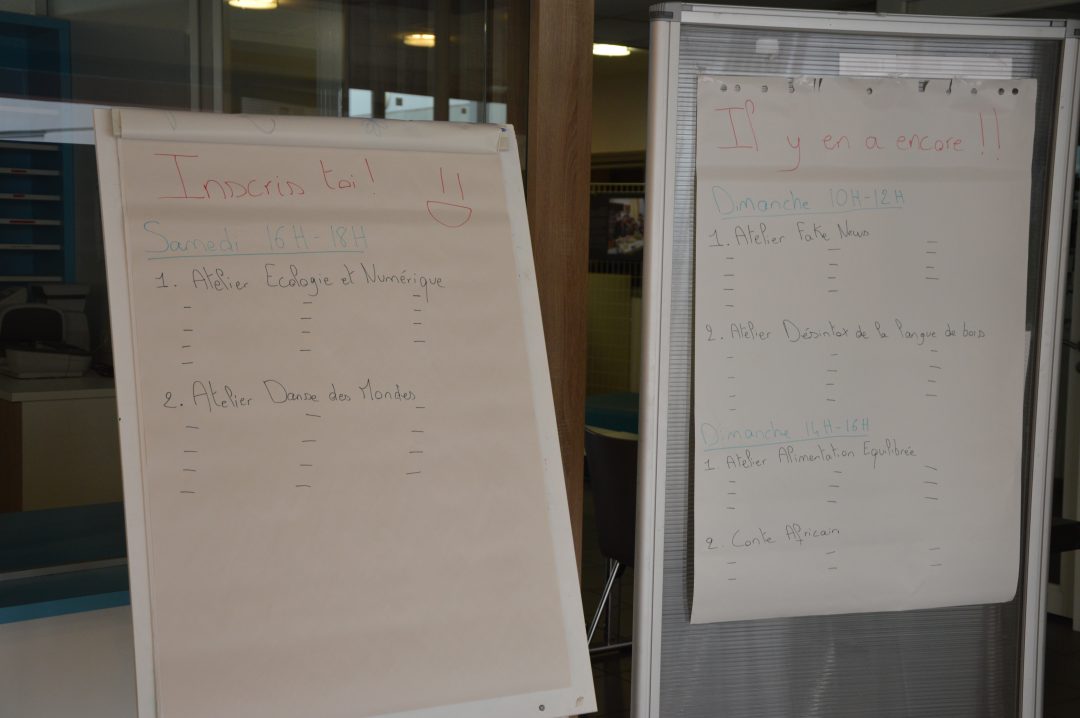 Inscris toi !
Samedi 16H-18H
1. Atelier Ecologie et Numérique
2. Atelier Danse des Mondes
Il y en a encore !!
Dimanche 10H-12H
1. Atelier Fake News
2. Atelier Désintox de la langue de bois
Dimanche 14H-16H
1. Atelier Alimentation Equilibrée
2. Conte Africain